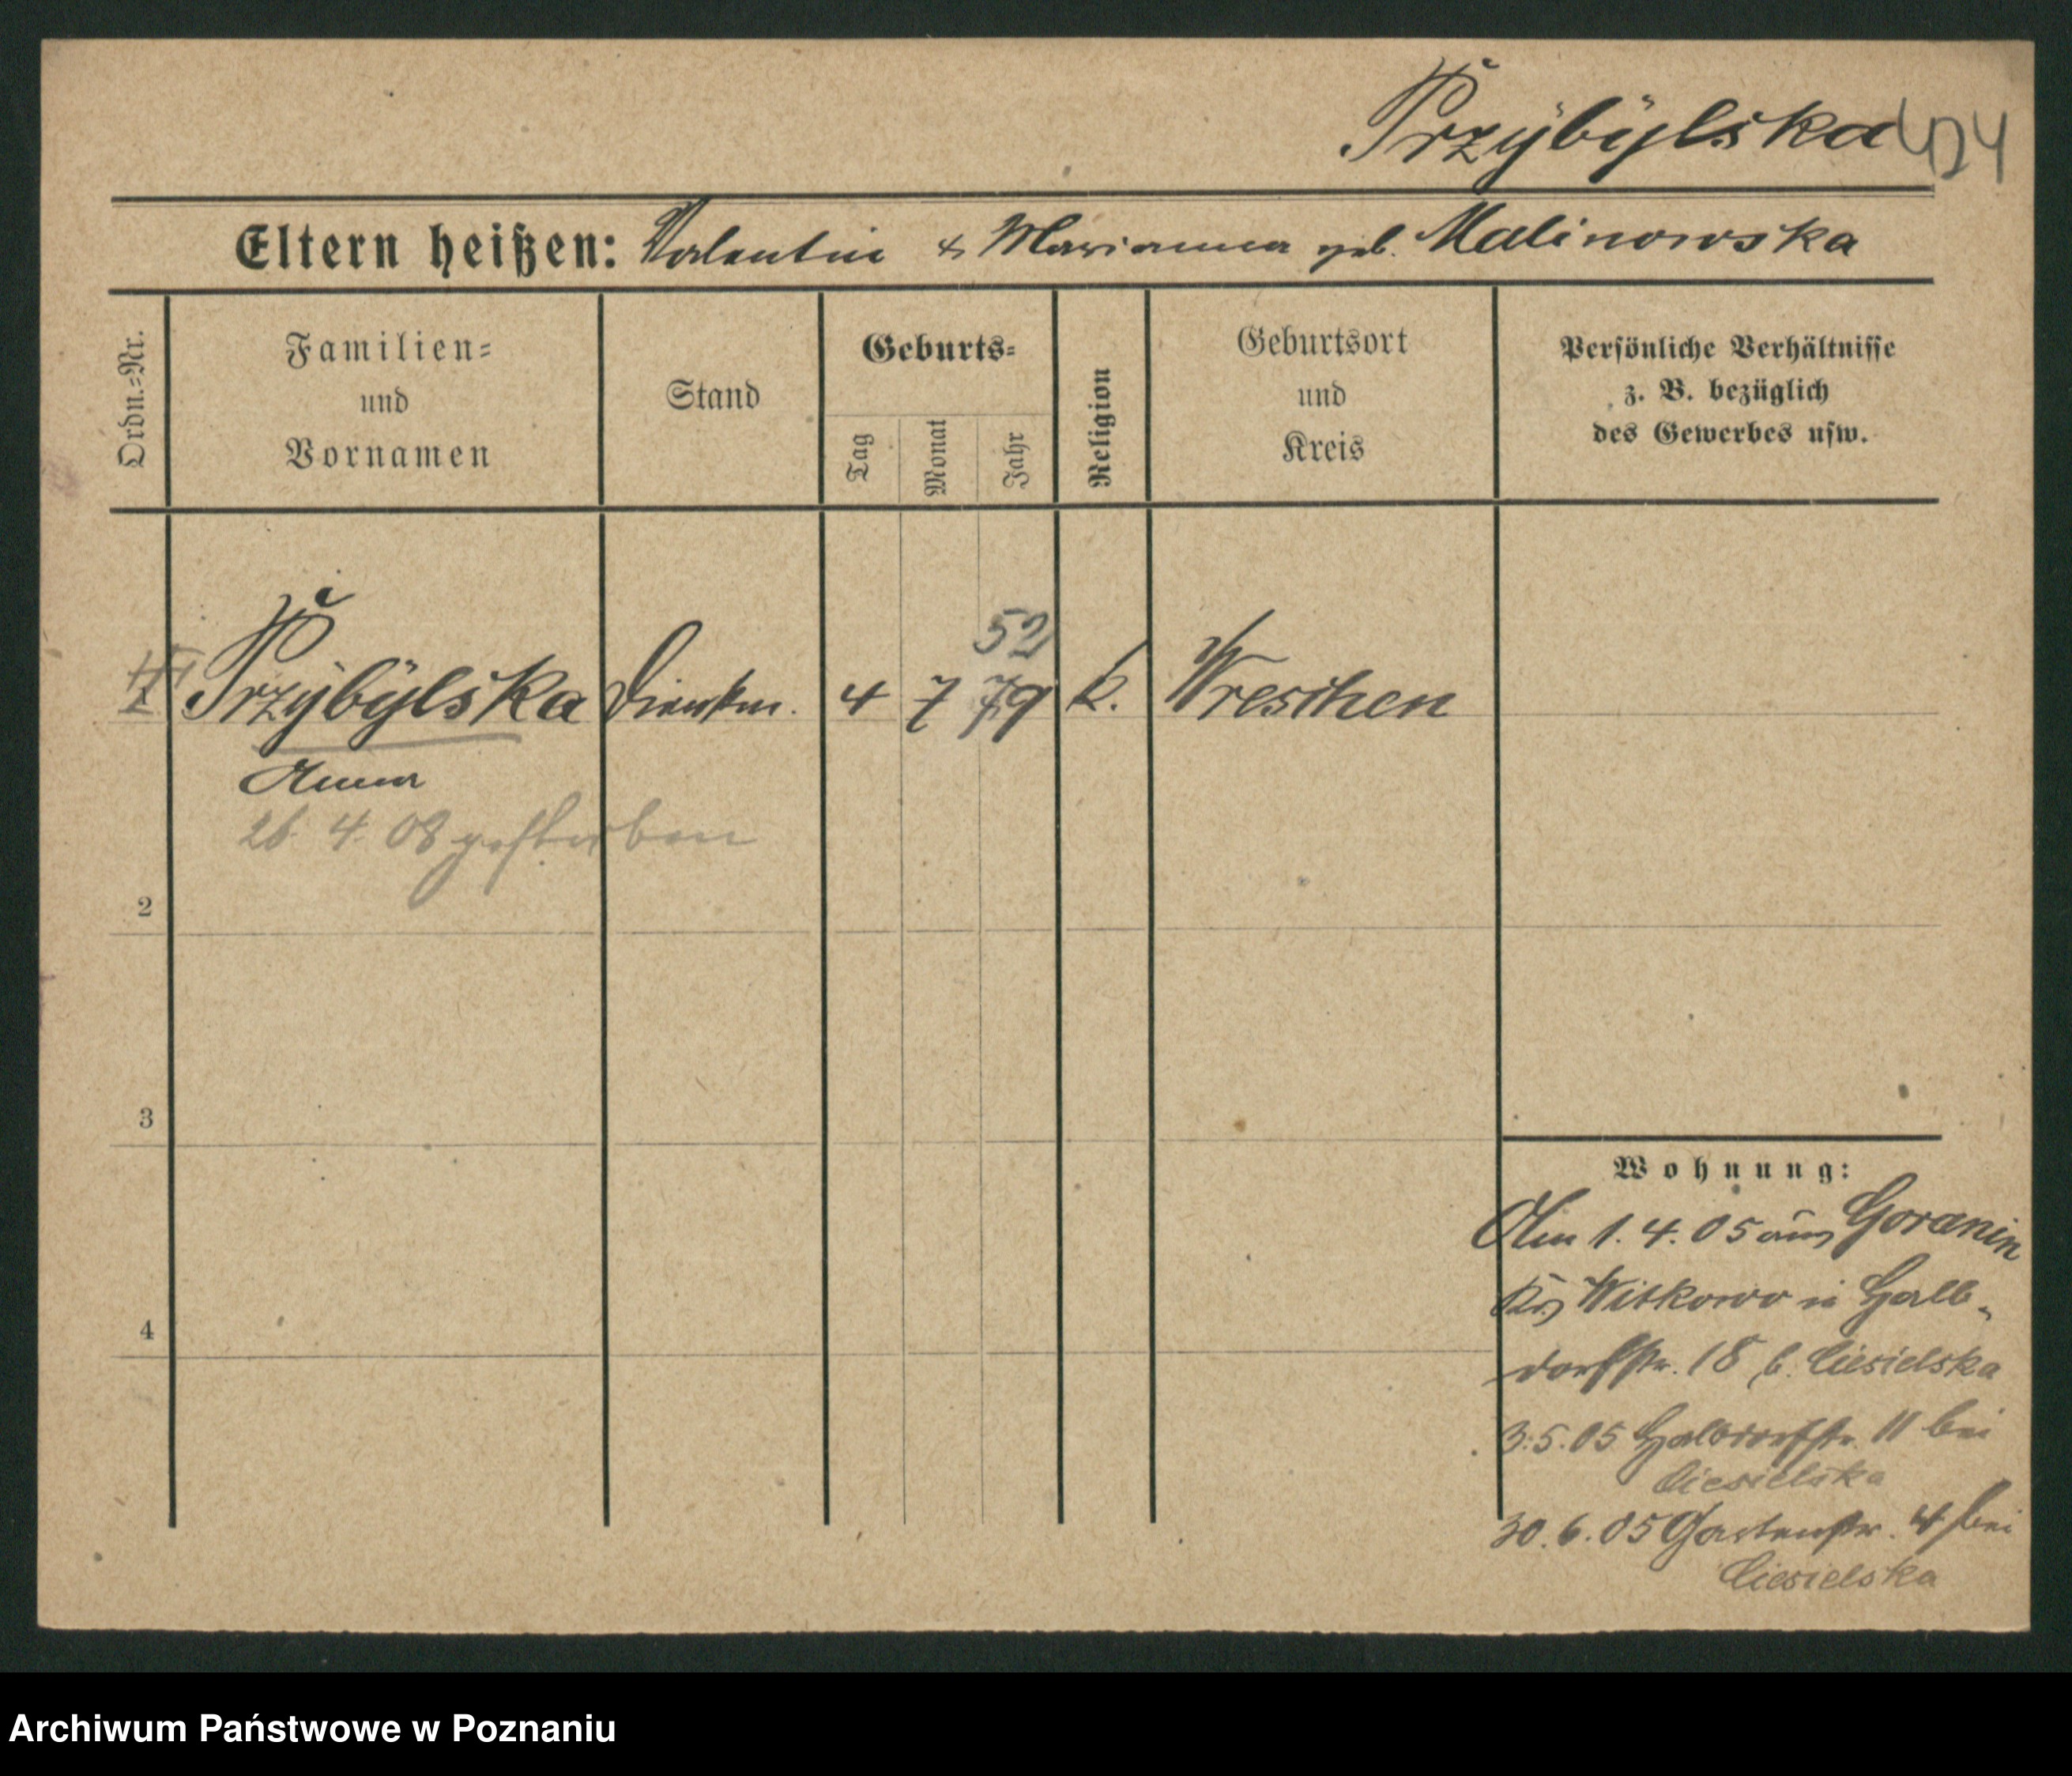 Przÿbÿlska 424
Eltern heißen: Valentin & Marianna geb. Malinowska
Ordn.-Nr.
Familien-
und
Vornamen
Stand
Geburts-
Tag
Monat
Jahr
Religion
Geburtsort
und
Kreis
Persönliche Verhältnisse
z. B. bezüglich
des Gewerbes usw.
52
1 Przÿbÿlska Dienstm. 4 7 79 k. Wreschen
Anna
26. 4. 08 gestorben
2
3
4
Wohnung:
Am 1. 4. 05 aus Goranin
Krs Witkowo in Halb-
dorfstr. 18 b. Ciesielska
3. 5. 05 Halbdorfstr. 11 bei
Ciesielska
30. 6. 05 Gartenstr. 4 bei
Ciesielska
Archiwum Państwowe w Poznaniu